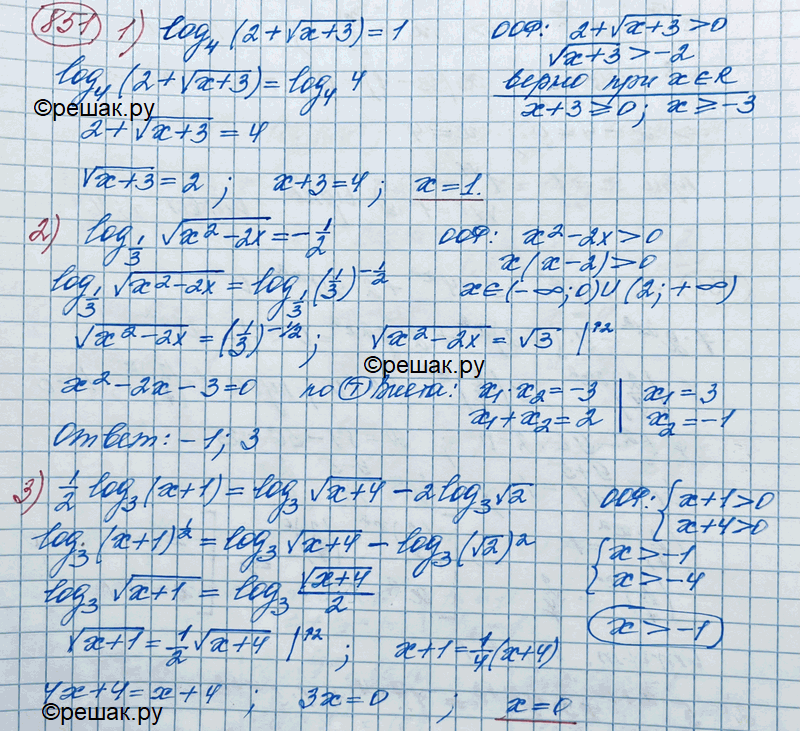 851 1) log₄(2+√(x+3))=1 ООФ: 2+√(x+3)>0
√(x+3)>-2
log₄(2+√(x+3))=log₄4 верно при x∈R
©решак.ру x+3≥0; x≥-3
2+√(x+3)=4
√(x+3)=2; x+3=4; x=1.
2) log_{1/3} √(x²-2x)=-1/2 ООФ: x²-2x>0
x(x-2)>0
log_{1/3} √(x²-2x)=log_{1/3}(1/3)^{-1/2} x∈(-∞;0)U(2;+∞)
√(x²-2x)=(1/3)^{-1/2}; √(x²-2x)=√3 |↑2
©решак.ру
x²-2x-3=0 по Т Виета: x₁·x₂=-3 | x₁=3
x₁+x₂=2 | x₂=-1
Ответ: -1; 3
3) 1/2 log₃(x+1)=log₃√(x+4)-2log₃√2 ООФ: { x+1>0
x+4>0
log₃(x+1)^{1/2}=log₃√(x+4)-log₃(√2)² { x>-1
x>-4
log₃√(x+1)=log₃ √(x+4)/2
x>-1
√(x+1)=1/2√(x+4) |↑2; x+1=1/4(x+4)
4x+4=x+4; 3x=0; x=0
©решак.ру